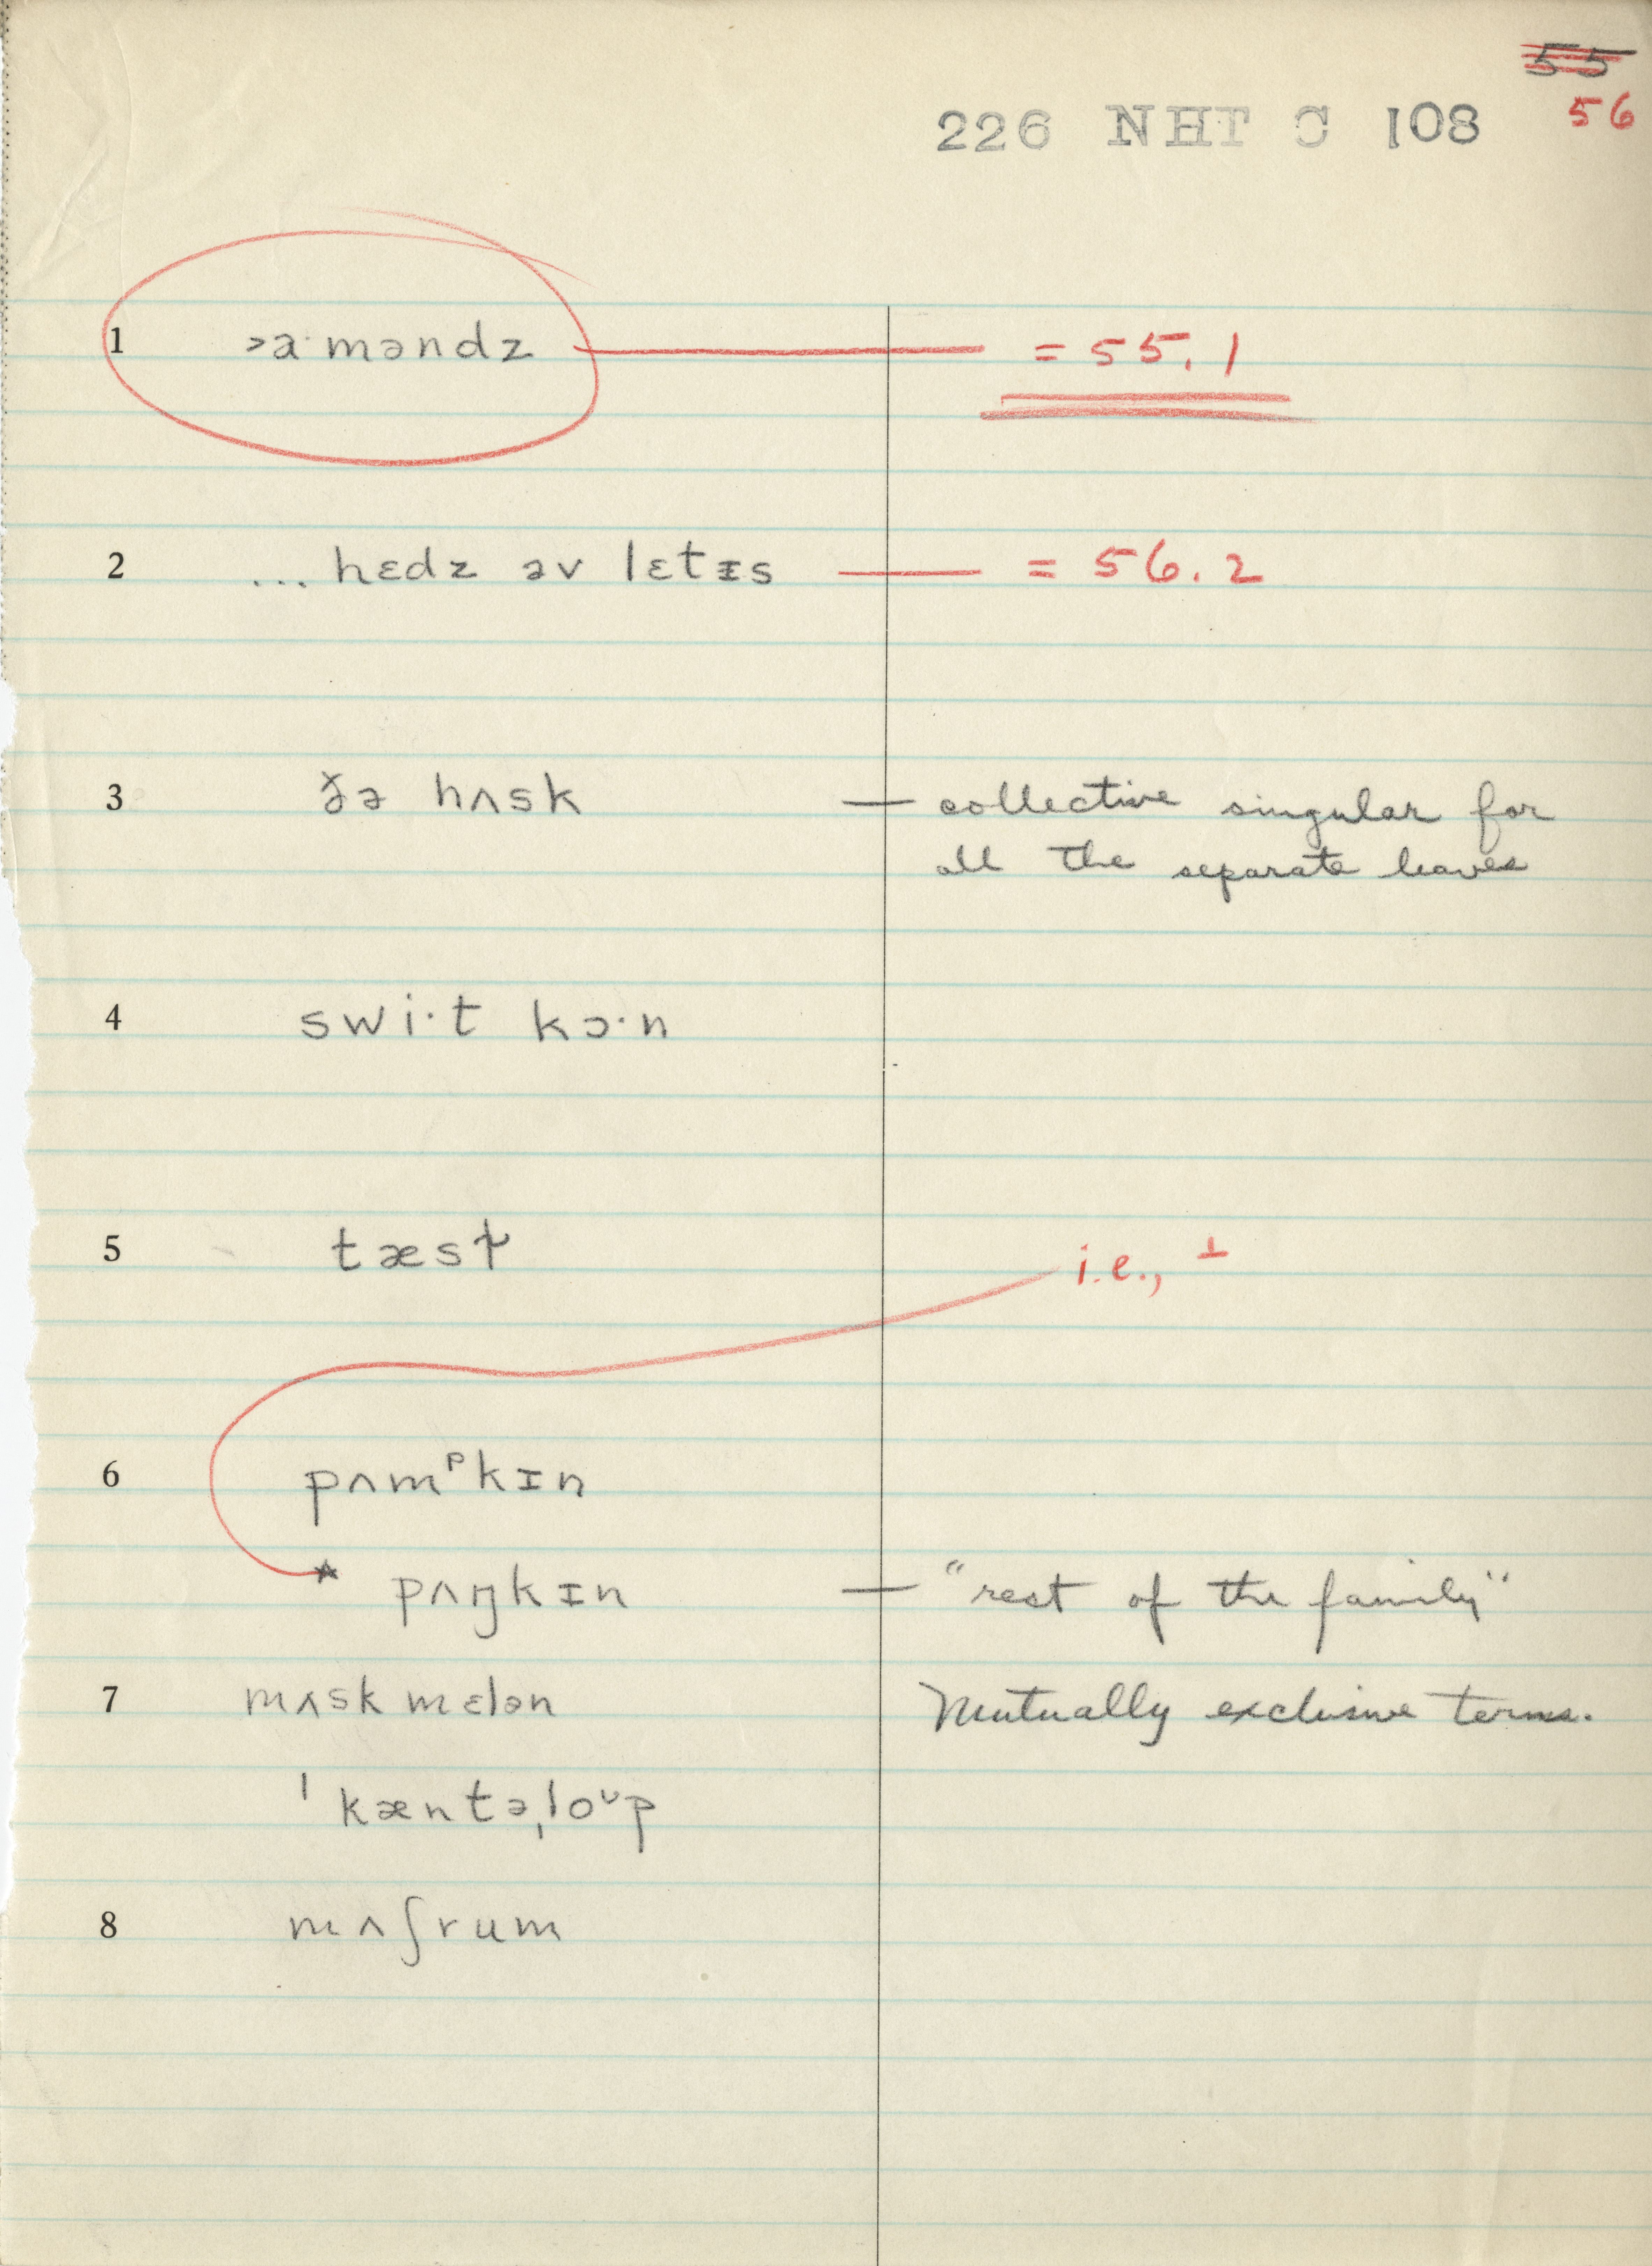 55
226 NHT C 108 56
1 >a·məndz = 55.1
2 ... hɛdz əv lɛtɪs = 56.2
3 ðə hʌsk — collective singular for
all the separate leaves
4 swi·t kɔ·n
5 tæsɫ i.e., ⊥
6 pʌmᵖkɪn
* pʌŋkɪn — "rest of the family"
7 mʌskmɛlən Mutually exclusive terms.
ˈkæntəˌloᶷp
8 mʌʃrum